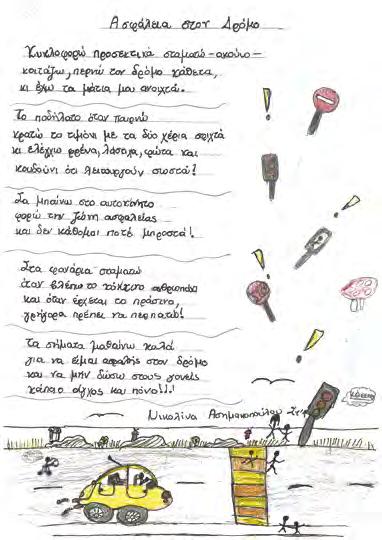 Ασφάλεια στον Δρόμο
Κυκλοφορώ προσεκτικά σταματώ-ακούω-
κοιτάζω, περνώ τον δρόμο κάθετα,
κι έχω τα μάτια μου ανοιχτά.
Το ποδήλατο όταν παίρνω
κρατώ το τιμόνι με τα δύο χέρια σφιχτά
κι ελέγχω φρένα, λάστιχα, φώτα και
κουδούνι ότι λειτουργούν σωστά!
Σα μπαίνω στο αυτοκίνητο
φορώ την ζώνη ασφαλείας
και δεν κάθομαι ποτέ μπροστά!
Στα φανάρια σταματώ
όταν βλέπω το κόκκινο ανθρωπάκι
και όταν έρχεται το πράσινο,
γρήγορα πρέπει να περπατώ!
Τα σήματα μαθαίνω καλά
για να είμαι ασφαλής στον δρόμο
και να μην δώσω στους γονείς
κάποιο άγχος και πόνο!!!
Νικολίνα Ασημακοπούλου